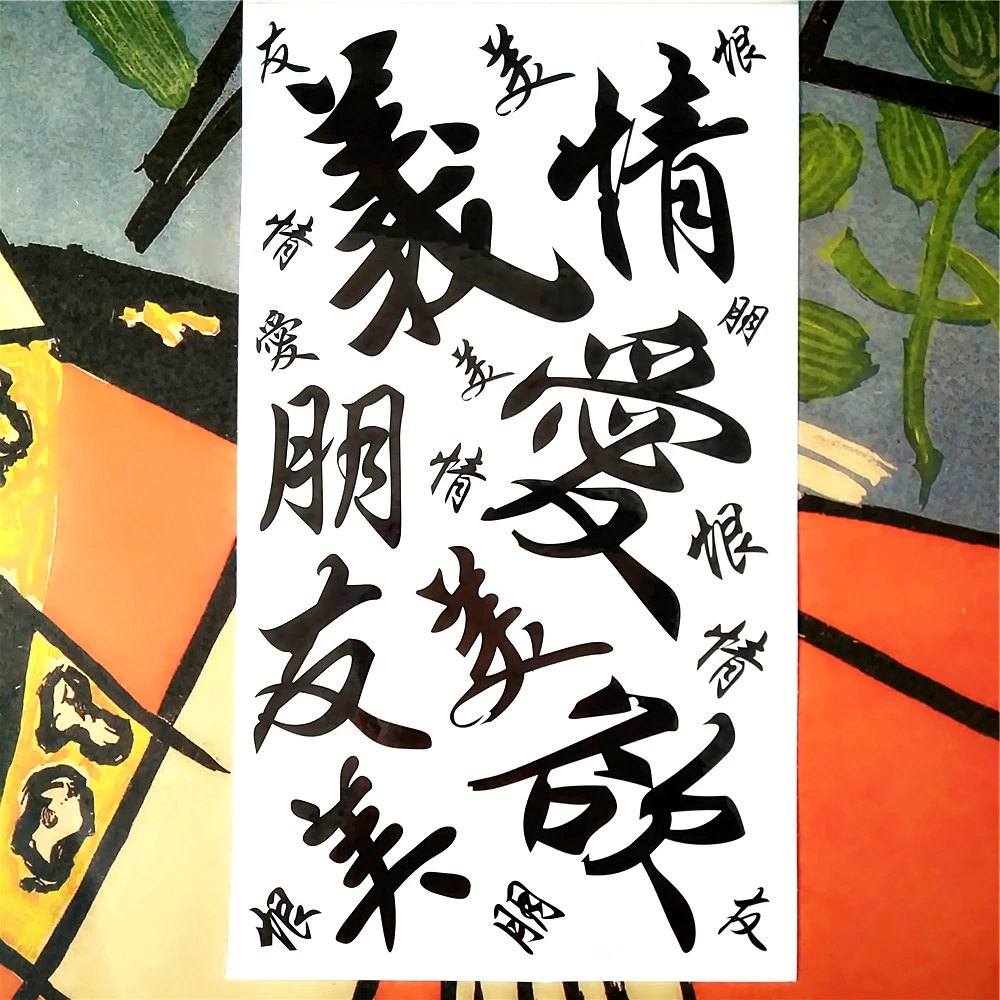 友
美
恨
義
情
情
朋
愛
美
愛
朋
情
恨
友
美
情
欲
美
恨
朋
友